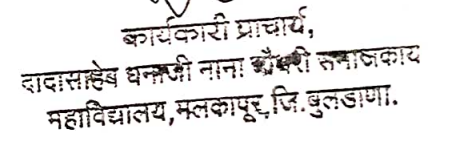 कार्यकारी प्राचार्य,
दादासाहेब धनाजी नाना चौधरी समाजकाय
महाविद्यालय,मलकापूर,जि.बुलडाणा.